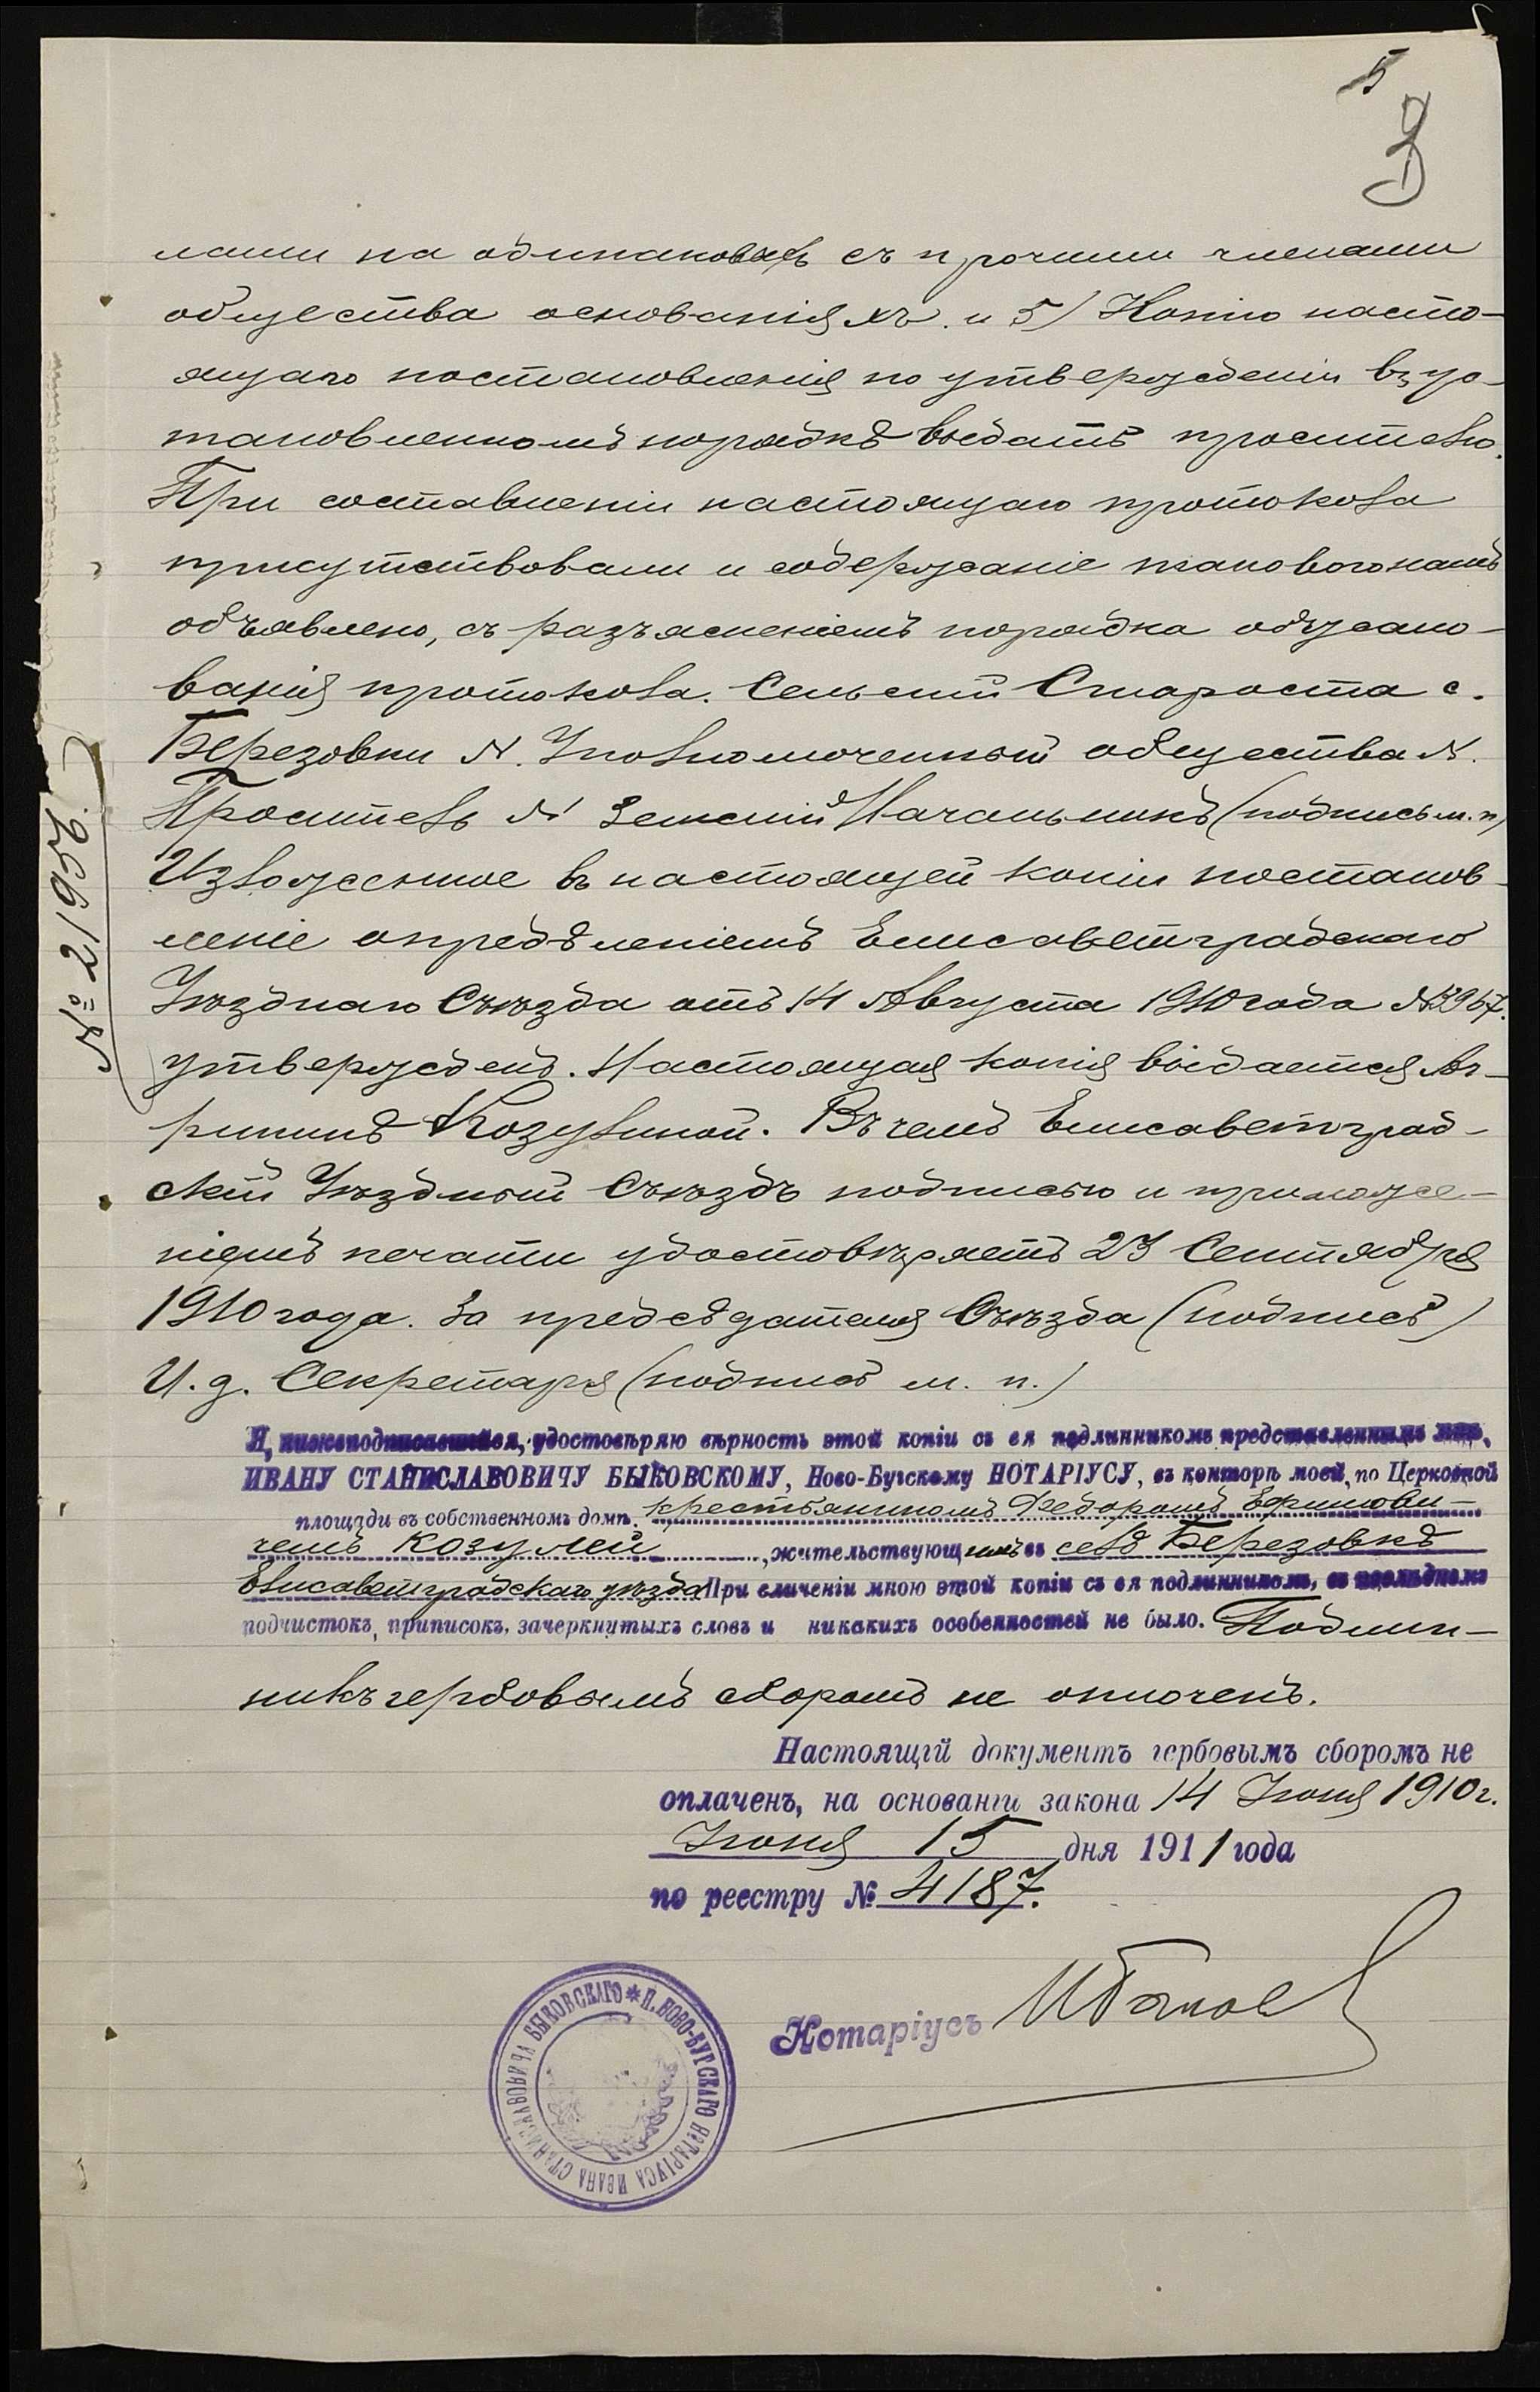 5
3
лами на одинаковыхъ съ прочими членами
общества основаніяхъ. и 5) Копію насто-
ящаго постановленія по утвержденіи въ ус-
тановленномъ порядкѣ выдать просителю.
При составленіи настоящаго протокола
присутствовали и содержаніе такового намъ
объявлено, съ разъясненіемъ порядка обжало-
ванія протокола. Сельскій Староста с.
Березовки N. Уполномоченный общества N.
Проситель N Земскій Начальникъ (подпись м. п.)
Изложенное въ настоящей копіи постанов-
леніе опредѣленіемъ Елисаветградскаго
Уѣзднаго Съѣзда отъ 14 Августа 1910 года №3967.
утверждено. Настоящая копія выдается Аг-
рипинѣ Козулиной. Въ чемъ Елисаветград-
скій Уѣздный Съѣздъ подписью и приложе-
ніемъ печати удостовѣряетъ 23 Сентября
1910 года. За предсѣдателя Съѣзда (подпись)
И. д. Секретаря (подпись м. п.)
№ 21956.
Я, нижеподписавшійся, удостовѣряю вѣрность этой копіи съ ея подлинникомъ представленнымъ мнѣ,
ИВАНУ СТАНИСЛАВОВИЧУ БЫКОВСКОМУ, Ново-Бугскому НОТАРІУСУ, въ конторѣ моей, по Церковной
площади въ собственномъ домѣ. крестьяниномъ Федоромъ Ефимови-
чемъ Козулей, жительствующимъ въ селѣ Березовкѣ
Елисаветградскаго уѣзда При сличеніи мною этой копіи съ ея подлинникомъ, въ послѣднемъ
подчистокъ, приписокъ, зачеркнутыхъ словъ и никакихъ особенностей не было. Подлин-
никъ гербовымъ сборомъ не оплоченъ.
Настоящій документъ гербовымъ сборомъ не
оплаченъ, на основаніи закона 14 Іюня 1910 г.
Іюня 15 дня 1911 года
по реестру № 4187.
Нотаріусъ
* Н. НОВО-БУГСКАГО НОТАРІУСА ИВАНА СТАНИСЛАВОВИЧА БЫКОВСКАГО